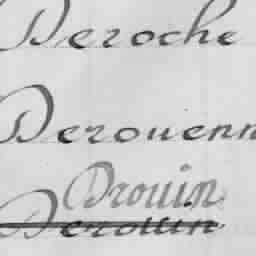 Deroche
Derouenn
Drouin
Derouin